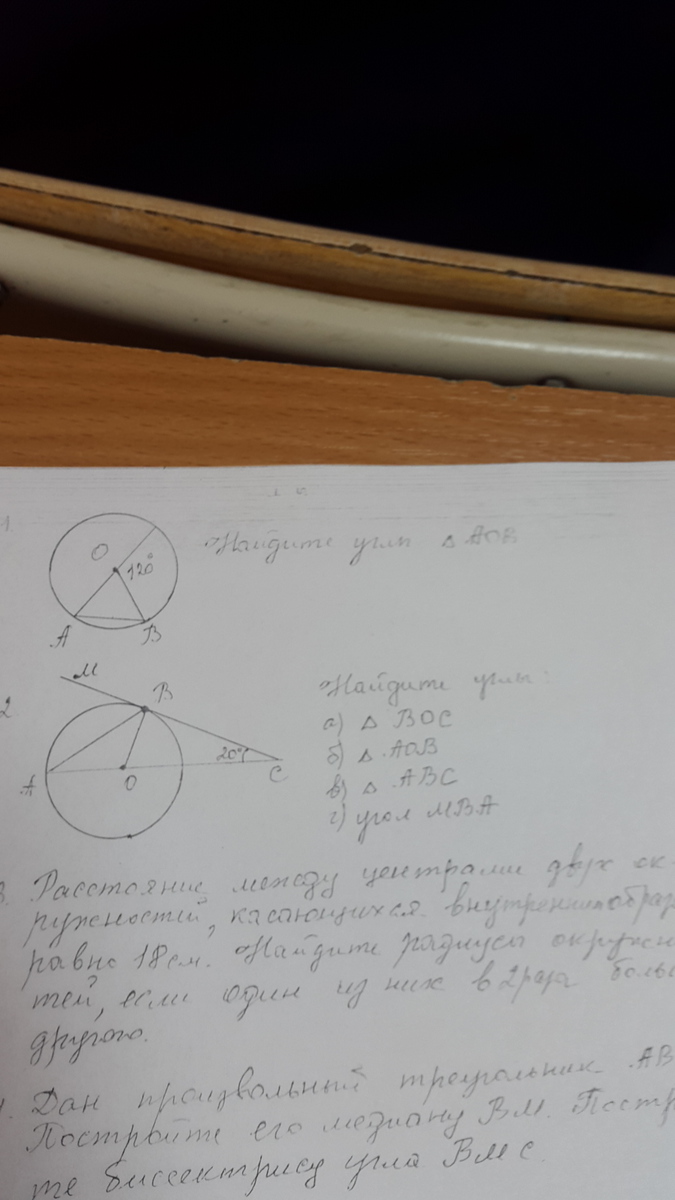 1.
O
120°
A
B
Найдите углы △ AOB
2
M
B
20°
A
O
C
Найдите углы:
а) △ BOC
б) △ AOB
в) △ ABC
г) угол MBA
3. Расстояние между центрами двух ок-
ружностей, касающихся внутренним образ
равно 18 см. Найдите радиусы окружн
тей, если один из них в 2 раза боль
другого.
. Дан произвольный треугольник AB
Постройте его медиану BM. Постр
те биссектрису угла BMC.